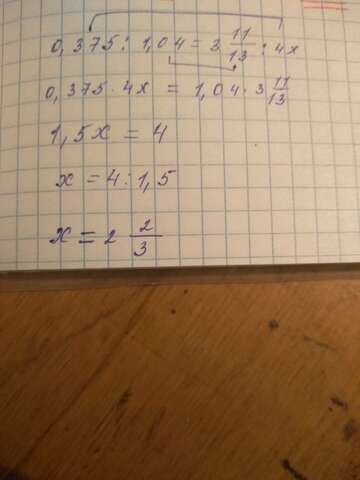 0,375 : 1,04 = 3 11/13 : 4x
0,375 · 4x = 1,04 · 3 11/13
1,5x = 4
x = 4 : 1,5
x = 2 2/3